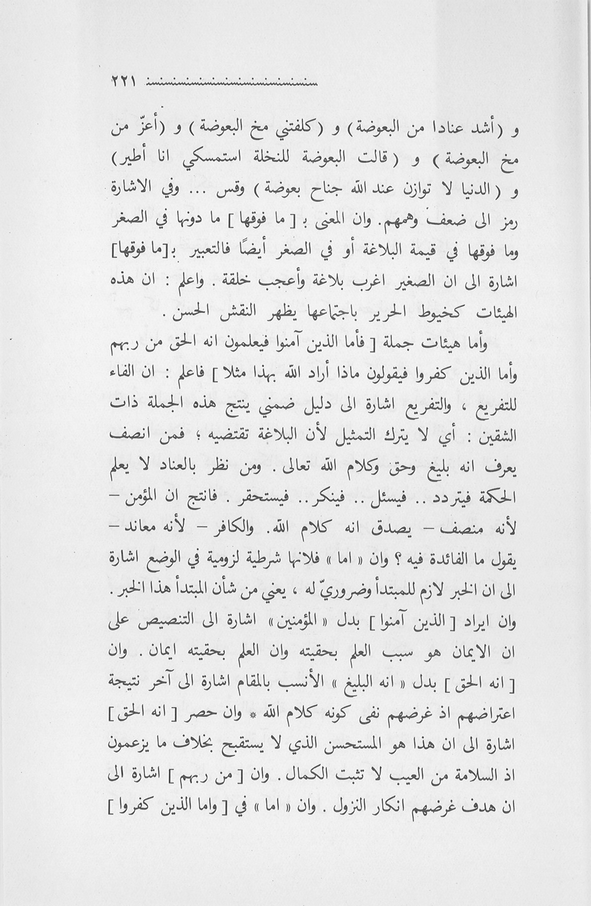 ٢٢١
و (أشد عنادا من البعوضة) و (كلفتني مخ البعوضة) و (أعزّ من
مخ البعوضة) و (قالت البعوضة للنخلة استمسكي انا أطير)
و (الدنيا لا توازن عند الله جناح بعوضة) وقس ... وفي الاشارة
رمز الى ضعف وهمهم. وان المعنى بـ [ما فوقها] ما دونها في الصغر
وما فوقها في قيمة البلاغة أو في الصغر أيضًا فالتعبير بـ[ما فوقها]
اشارة الى ان الصغير اغرب بلاغة وأعجب خلقة . واعلم : ان هذه
الهيئات كخيوط الحرير باجتماعها يظهر النقش الحسن .
وأما هيئات جملة [فأما الذين آمنوا فيعلمون انه الحق من ربهم
وأما الذين كفروا فيقولون ماذا أراد الله بهذا مثلا] فاعلم : ان الفاء
للتفريع ، والتفريع اشارة الى دليل ضمني ينتج هذه الجملة ذات
الشقين : أي لا يترك التمثيل لأن البلاغة تقتضيه ؛ فمن انصف
يعرف انه بليغ وحق وكلام الله تعالى . ومن نظر بالعناد لا يعلم
الحكمة فيتردد .. فيسئل .. فينكر .. فيستحقر . فانتج ان المؤمن –
لأنه منصف – يصدق انه كلام الله. والكافر – لأنه معاند –
يقول ما الفائدة فيه ؟ وان « اما » فلانها شرطية لزومية في الوضع اشارة
الى ان الخبر لازم للمبتدأ وضروريّ له ، يعني من شأن المبتدأ هذا الخبر .
وان ايراد [الذين آمنوا] بدل « المؤمنين» اشارة الى التنصيص على
ان الايمان هو سبب العلم بحقيته وان العلم بحقيته ايمان . وان
[انه الحق] بدل « انه البليغ » الأنسب بالمقام اشارة الى آخر نتيجة
اعتراضهم اذ غرضهم نفى كونه كلام الله * وان حصر [انه الحق]
اشارة الى ان هذا هو المستحسن الذي لا يستقبح بخلاف ما يزعمون
اذ السلامة من العيب لا تثبت الكمال . وان [من ربهم] اشارة الى
ان هدف غرضهم انكار النزول . وان « اما » في [واما الذين كفروا]